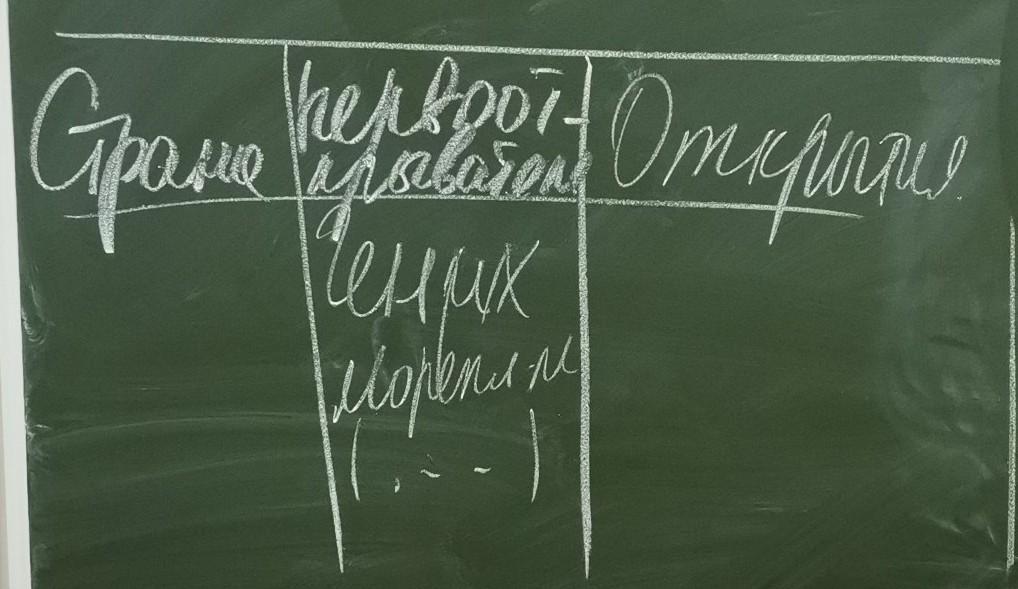 Страна
первоот-
крыватели
Открытия
Генрих
морепл-ль
( . ~ - )